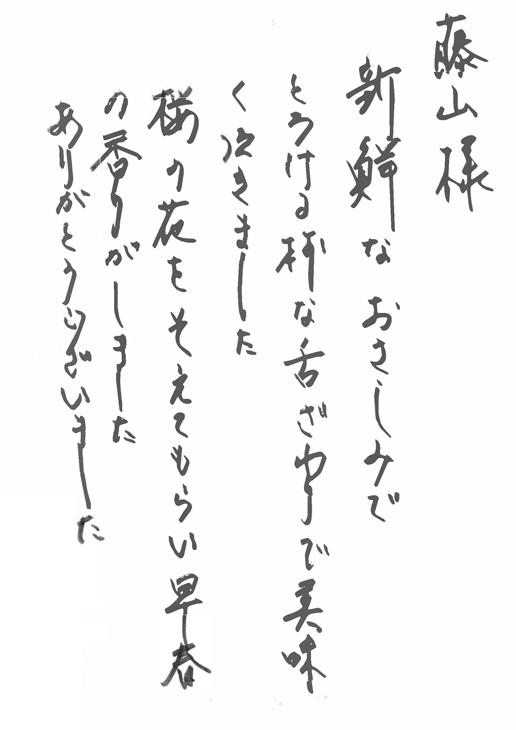 藤山様
新鮮なおさしみで
とろける様な舌ざわりで美味
く頂きました
桜の花をそえてもらい早春
の香りがしました
ありがとうございました